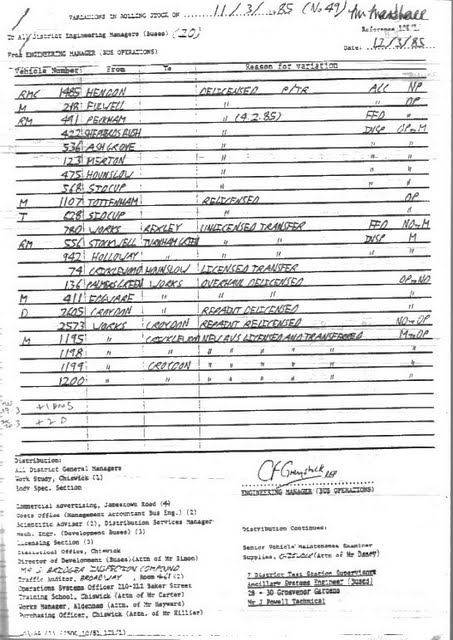 VARIATIONS IN ROLLING STOCK ON 11/3/85 (No 49) Mr Marshall
To All District Engineering Managers (Buses) (20) Reference
From ENGINEERING MANAGER (BUS OPERATIONS) Date: 12/3/85
Vehicle Number From To Reason for variation
RMC 1485 HENDON DELICENSED P/TR ACC NP
M 218 FULWELL " " OP
RM 491 PECKHAM " (4.2.85) FFD "
422 SHEPHERDS BUSH " DISP OP→M
536 ASH GROVE " " "
123 MERTON " " "
475 HOUNSLOW " " "
568 SIDCUP " " "
M 1107 TOTTENHAM RELICENSED OP
T 628 SIDCUP " "
780 WORKS BEXLEY UNLICENSED TRANSFER FFD NO→M
RM 556 STOCKWELL TURNHAM GREEN " " DISP M
942 HOLLOWAY " " " " "
74 CRICKLEWOOD HOUNSLOW LICENSED TRANSFER
136 PALMERS GREEN WORKS OVERHAUL DELICENSED OP→NO
M 411 EDGWARE " " "
D 2605 CROYDON REPAINT DELICENSED
2573 WORKS CROYDON REPAINT RELICENSED NO→OP
M 1195 " CRICKLEWOOD NEW BUS LICENSED AND TRANSFERRED M→OP
1198 " " " " " " "
1199 " CROYDON " " " " "
1200 " " " " " " "
+2 D
Distribution:
All District General Managers
Work Study, Chiswick (1)
Body Spec. Section
ENGINEERING MANAGER (BUS OPERATIONS)
Commercial Advertising, Jamestown Road (4)
Costs Office (Management Accountant Bus Eng.) (2)
Scientific Adviser (2), Distribution Services Manager
Mech. Engr. (Development Buses) (3)
Licensing Section (3)
Statistical Office, Chiswick
Director of Development (Buses)(Attn of Mr Simon)
INSPECTION COMPOUND
Traffic Auditor, BROADWAY, ROOM 461 (2)
Operations Systems Officer 210-212 Baker Street
Training School, Chiswick (Attn of Mr Carter)
Works Manager, Aldenham (Attn of Mr Hayward)
Purchasing Officer, Chiswick (Attn. of Mr Hillier)
Distribution Continues:
Senior Vehicle Maintenance Examiner
Supplies, (Attn of Mr Dasey)
7 District Test Station Supervisors
Ancillary Systems Engineer (Buses)
28 - 30 Grosvenor Gardens
Mr J Powell Technical